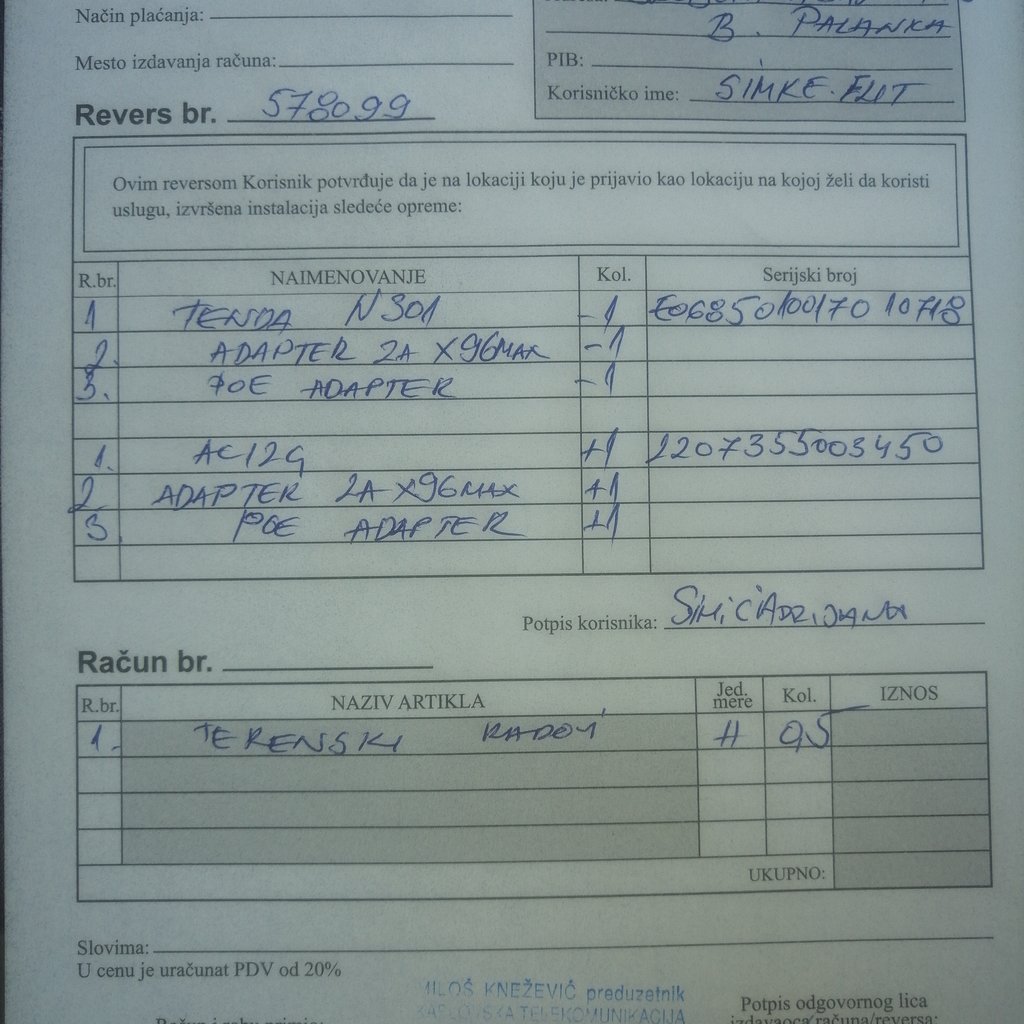 Način plaćanja:
B. PALANKA
Mesto izdavanja računa:
PIB:
Korisničko ime: SIMKE.ELIT
Revers br. 578099
Ovim reversom Korisnik potvrđuje da je na lokaciji koju je prijavio kao lokaciju na kojoj želi da koristi
uslugu, izvršena instalacija sledeće opreme:
R.br. NAIMENOVANJE Kol. Serijski broj
1 TENDA N301 -1 E0685010017010718
2. ADAPTER 2A X96MAX -1
3. POE ADAPTER -1
1. AC12G +1 2207355003450
2 ADAPTER 2A X96MAX +1
3. POE ADAPTER +1
Potpis korisnika: SIMIĆ ADRIJANA
Račun br.
R.br. NAZIV ARTIKLA Jed. mere Kol. IZNOS
1. TERENSKI RADOVI H 0,5
UKUPNO:
Slovima:
U cenu je uračunat PDV od 20%
MILOŠ KNEŽEVIĆ preduzetnik
KARLOVSKA TELEKOMUNIKACIJA
Potpis odgovornog lica
izdavaoca računa/reversa: